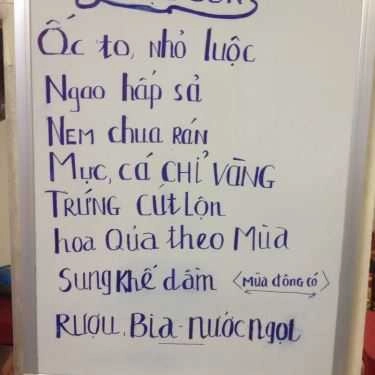 Ốc to, nhỏ luộc
Ngao hấp sả
NEM chua RÁN
Mực, cá CHỈ VÀNG
TRỨNG CÚT LỘN
hoa Qủa theo Mùa
Sung Khế dầm <Mùa đông có>
RƯỢU. Bia - nước ngọt